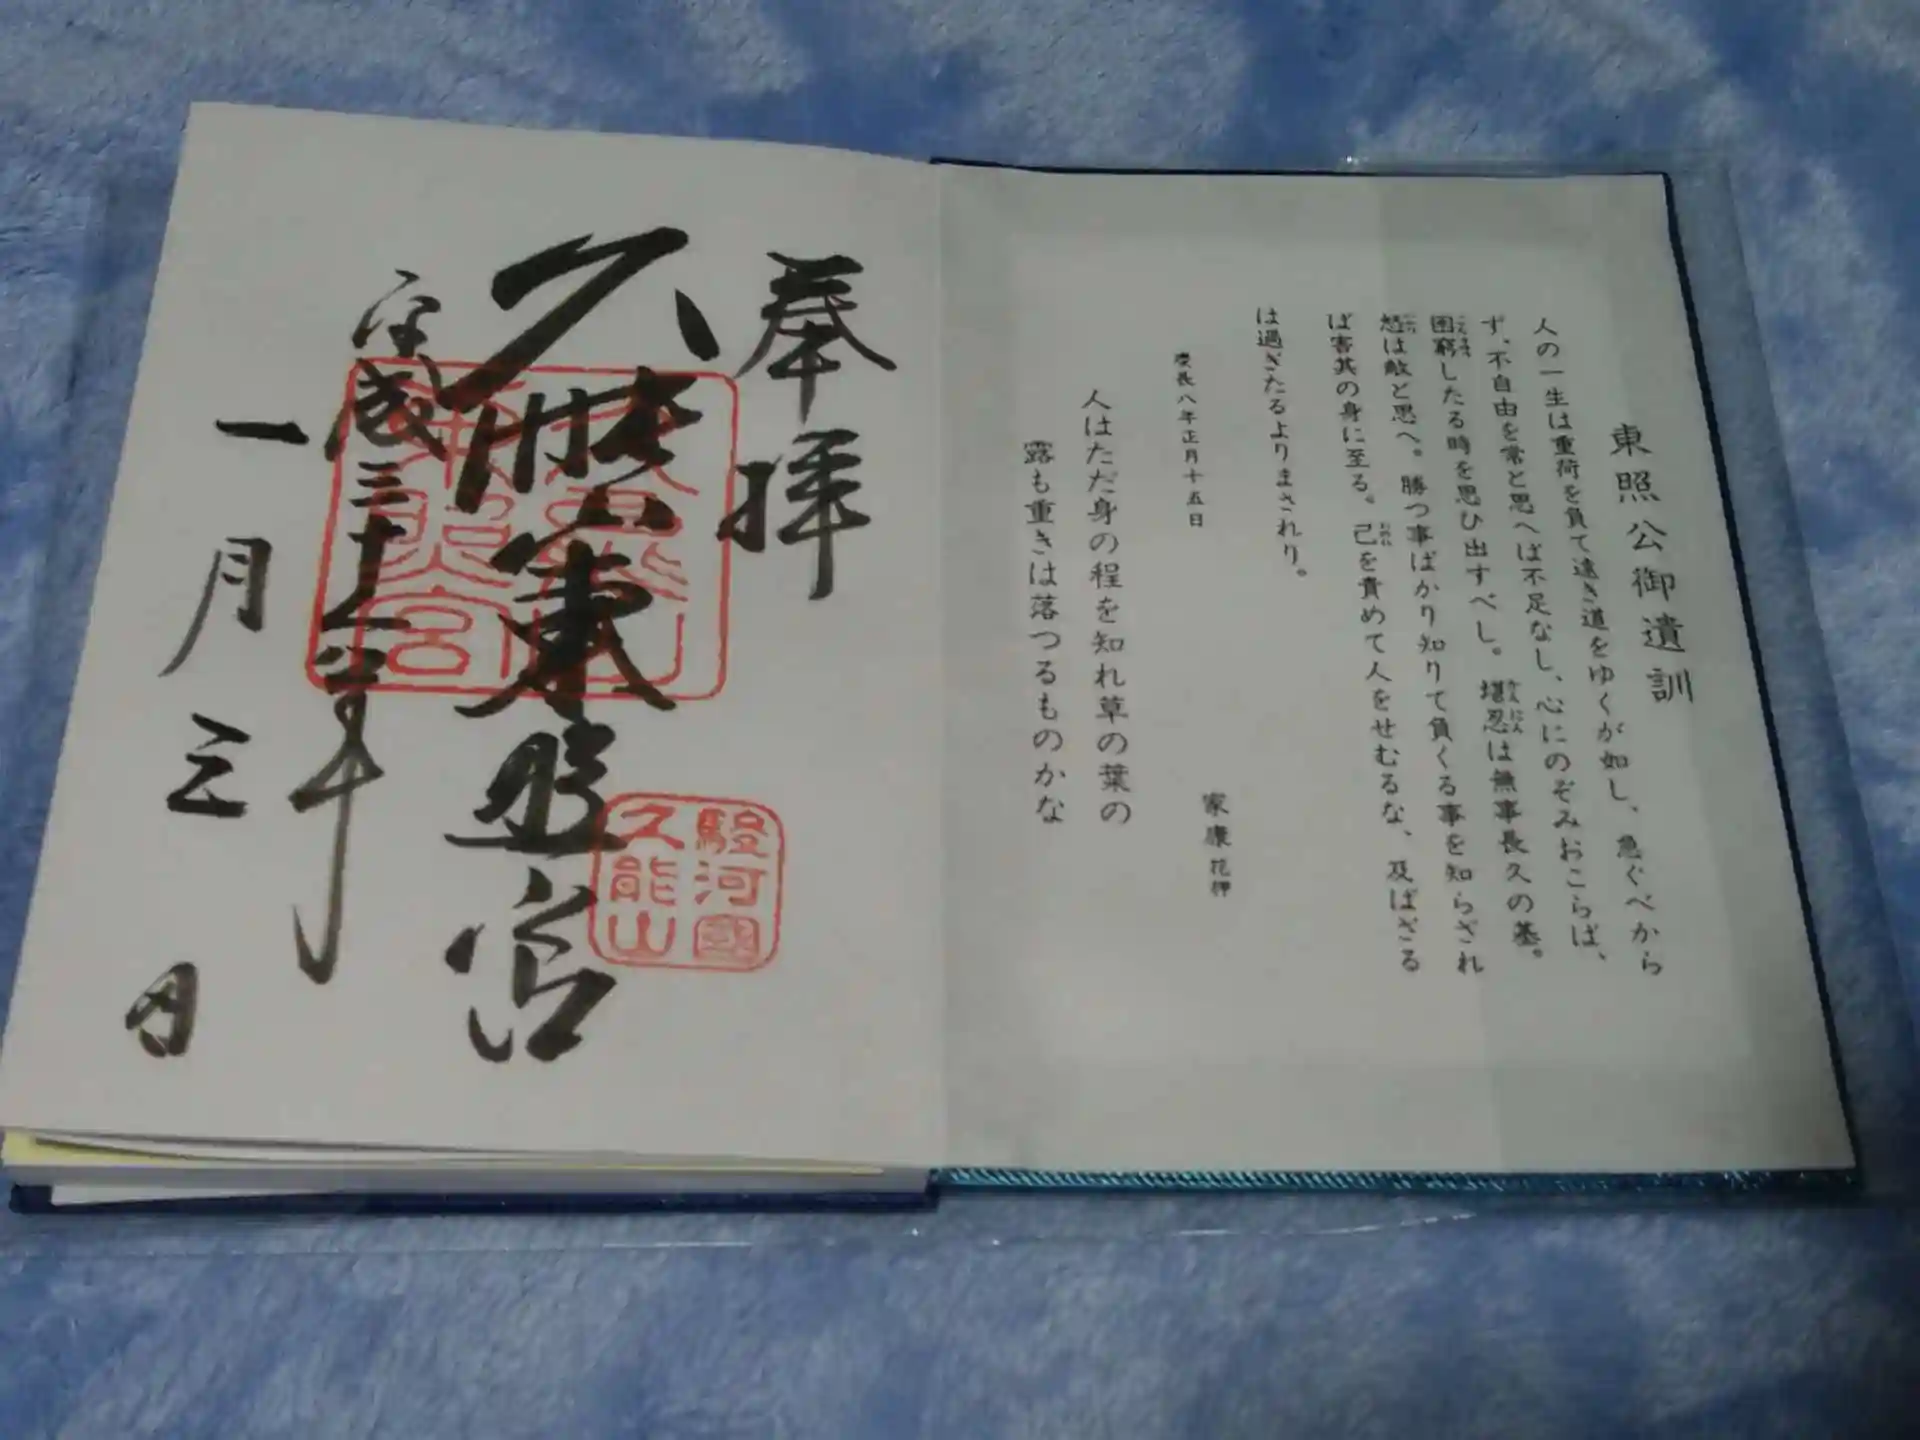 東照公御遺訓
人の一生は重荷を負て遠き道をゆくが如し、急ぐべから
ず、不自由を常と思へば不足なし、心にのぞみおこらば、
困窮したる時を思ひ出すべし。堪忍は無事長久の基。
怒は敵と思へ。勝つ事ばかり知りて負くる事を知らざれ
ば害其の身に至る。己を責めて人をせむるな、及ばざる
は過ぎたるよりまされり。
慶長八年正月十五日
家康 花押
人はただ身の程を知れ草の葉の
露も重きは落つるものかな
奉拝
久能山東照宮
平成三十一年
一月三日
久能山
東照宮
駿河國
久能山